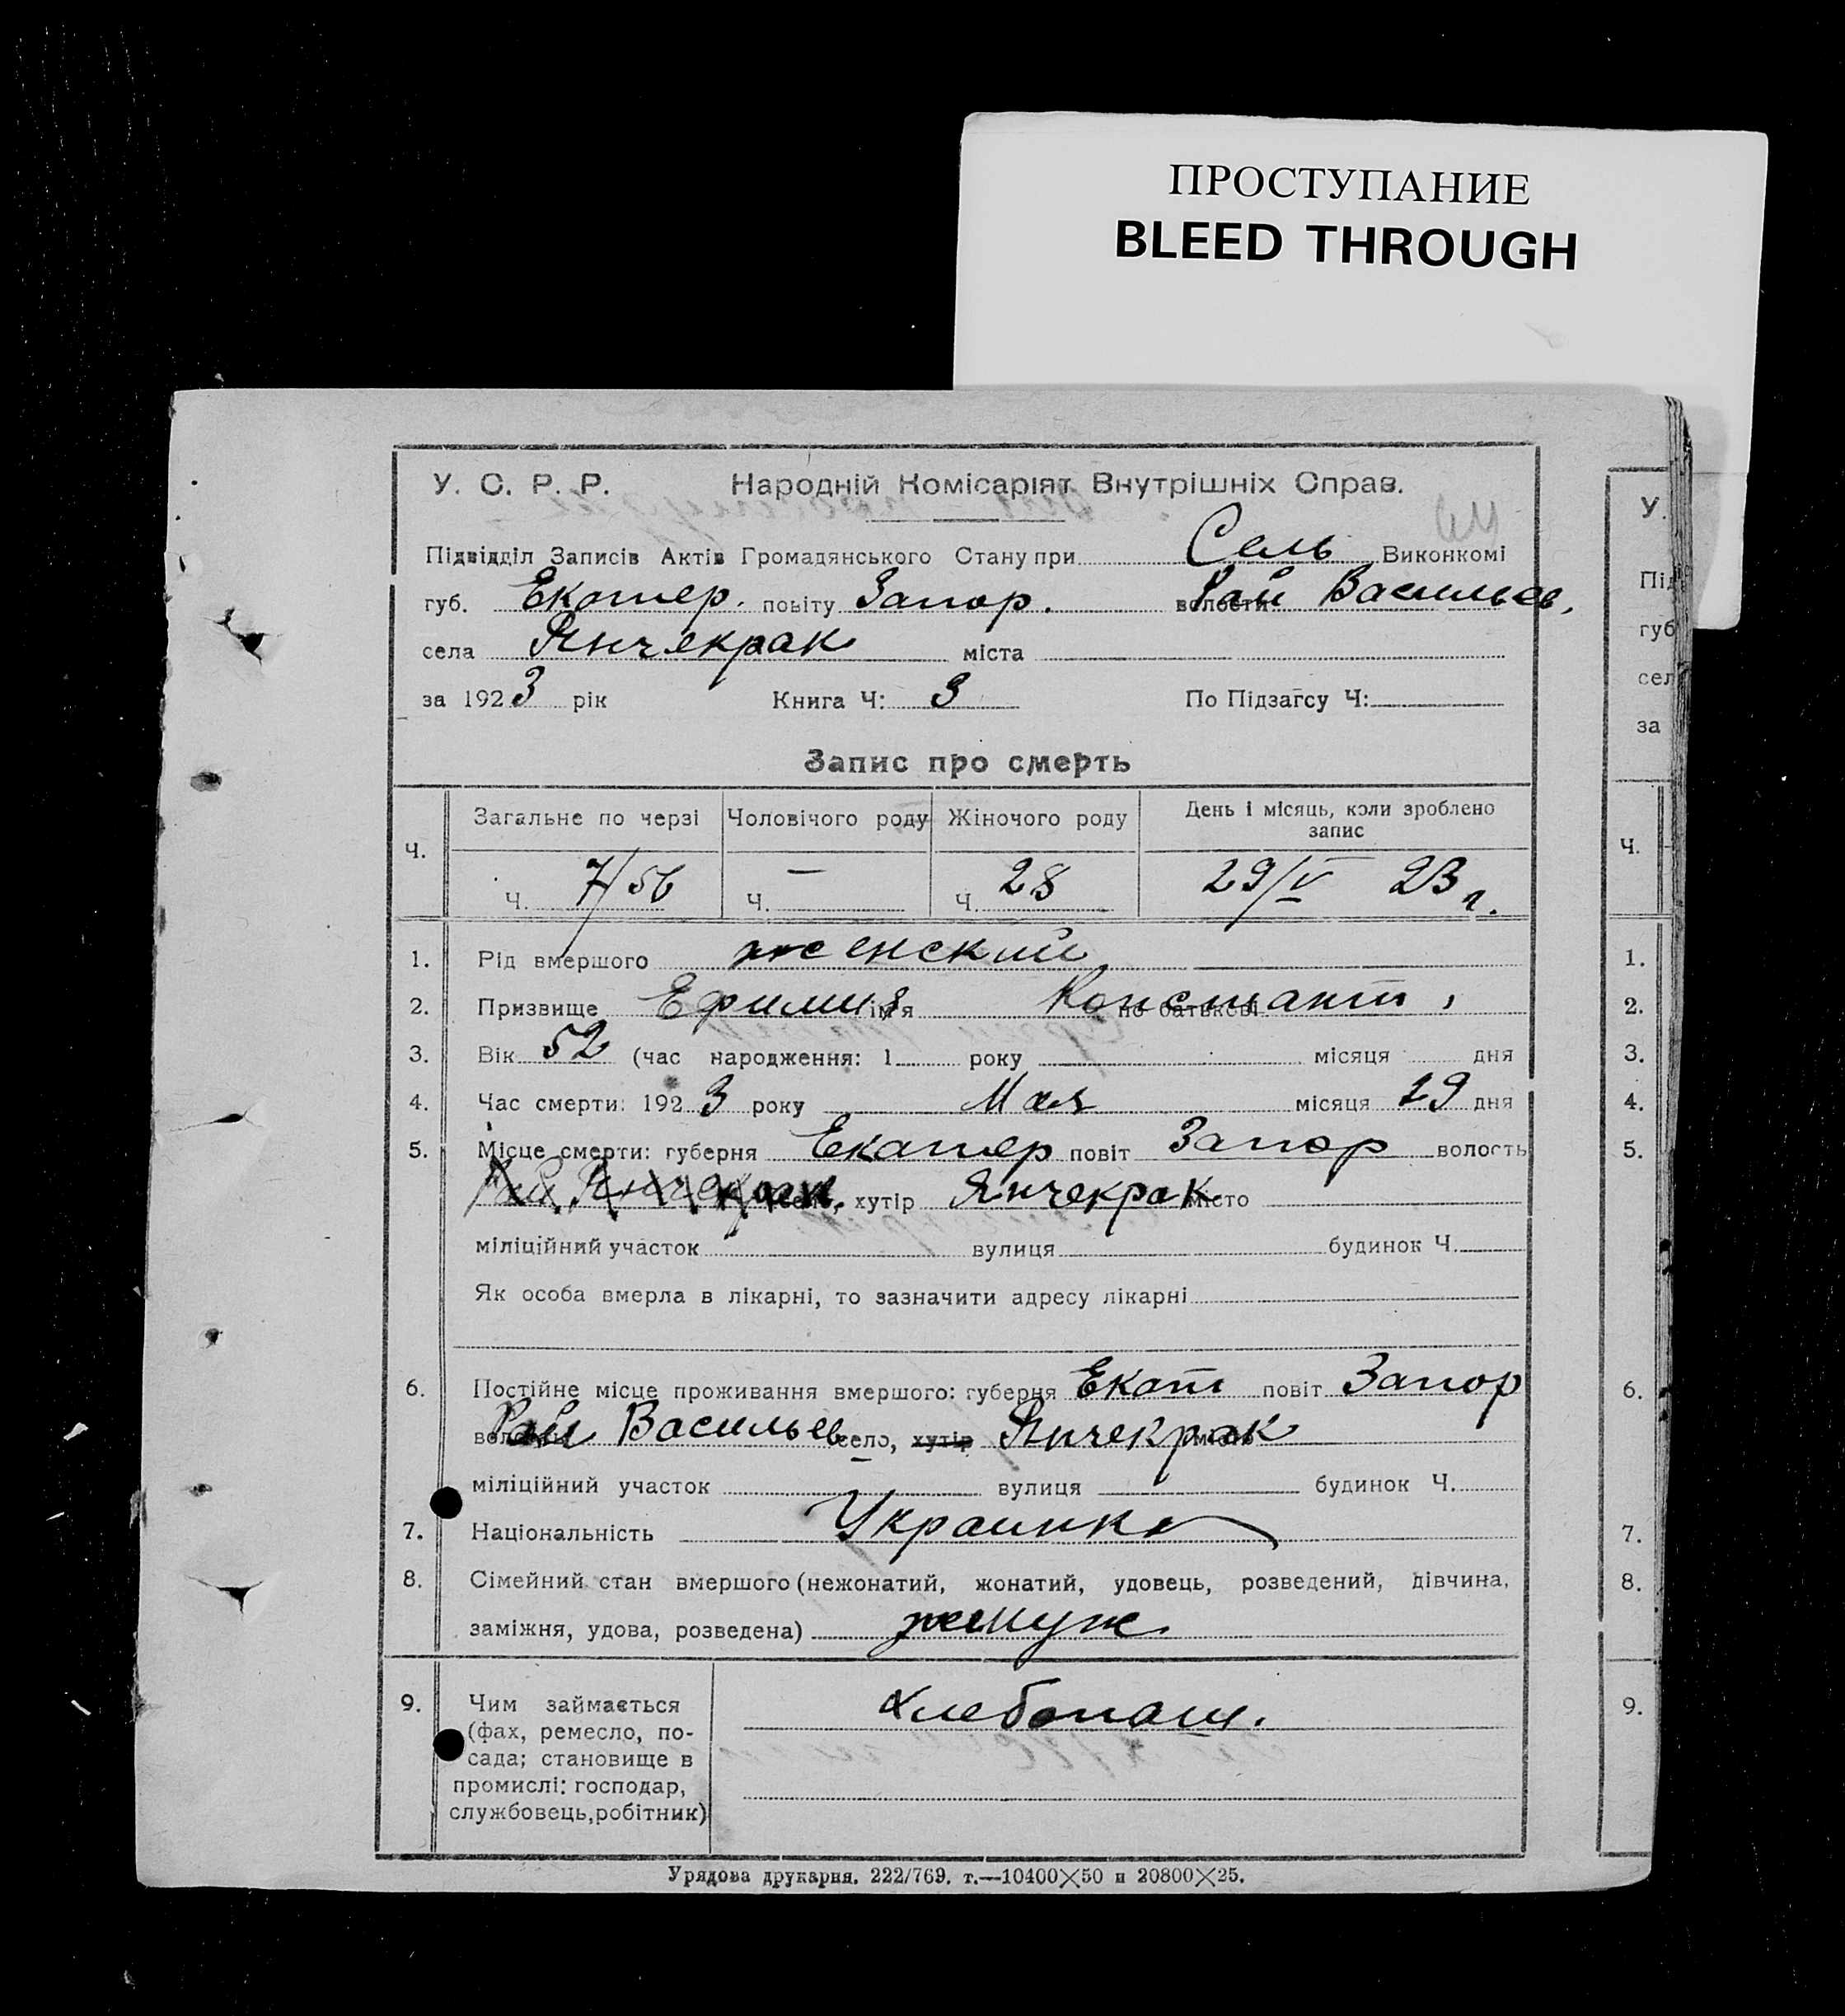 ПРОСТУПАНИЕ
BLEED THROUGH
У. С. Р. Р. Народній Комісаріят Внутрішніх Справ.
Підвідділ Записів Актів Громадянського Стану при Сель Виконкомі
губ. Екатер. повіту Запор. волости Рай Васильев.
села Янчекрак міста
за 1923 рік Книга Ч: 3 По Підзагсу Ч:
Запис про смерть
Ч. Загальне по черзі Чоловічого роду Жіночого роду День і місяць, коли зроблено запис
Ч. 7/56 Ч. — Ч. 28 29/V 23 г.
1. Рід вмершого женский
2. Призвище Ефимия ім'я Констант. по батькові
3. Вік 52 (час народження: 1 року місяця дня
4. Час смерти: 1923 року Мая місяця 29 дня
5. Місце смерти: губерня Екатер повіт Запор волость
Рай Янчекрак село, хутір Янчекрак місто
міліційний участок вулиця будинок Ч.
Як особа вмерла в лікарні, то зазначити адресу лікарні
6. Постійне місце проживання вмершого: губерня Екат повіт Запор
волость Рай Васильев село, хутір Янчекрак місто
міліційний участок вулиця будинок Ч.
7. Національність Украинка
8. Сімейний стан вмершого (нежонатий, жонатий, удовець, розведений, дівчина,
заміжня, удова, розведена) замуж
9. Чим займається Хлебопаш.
(фах, ремесло, по-
сада; становище в
промислі: господар,
службовець, робітник)
Урядова друкарня. 222/769. т.—10400×50 и 20800×25.
У.
Під
губ
сел
за
Ч.
1.
2.
3.
4.
5.
6.
7.
8.
9.